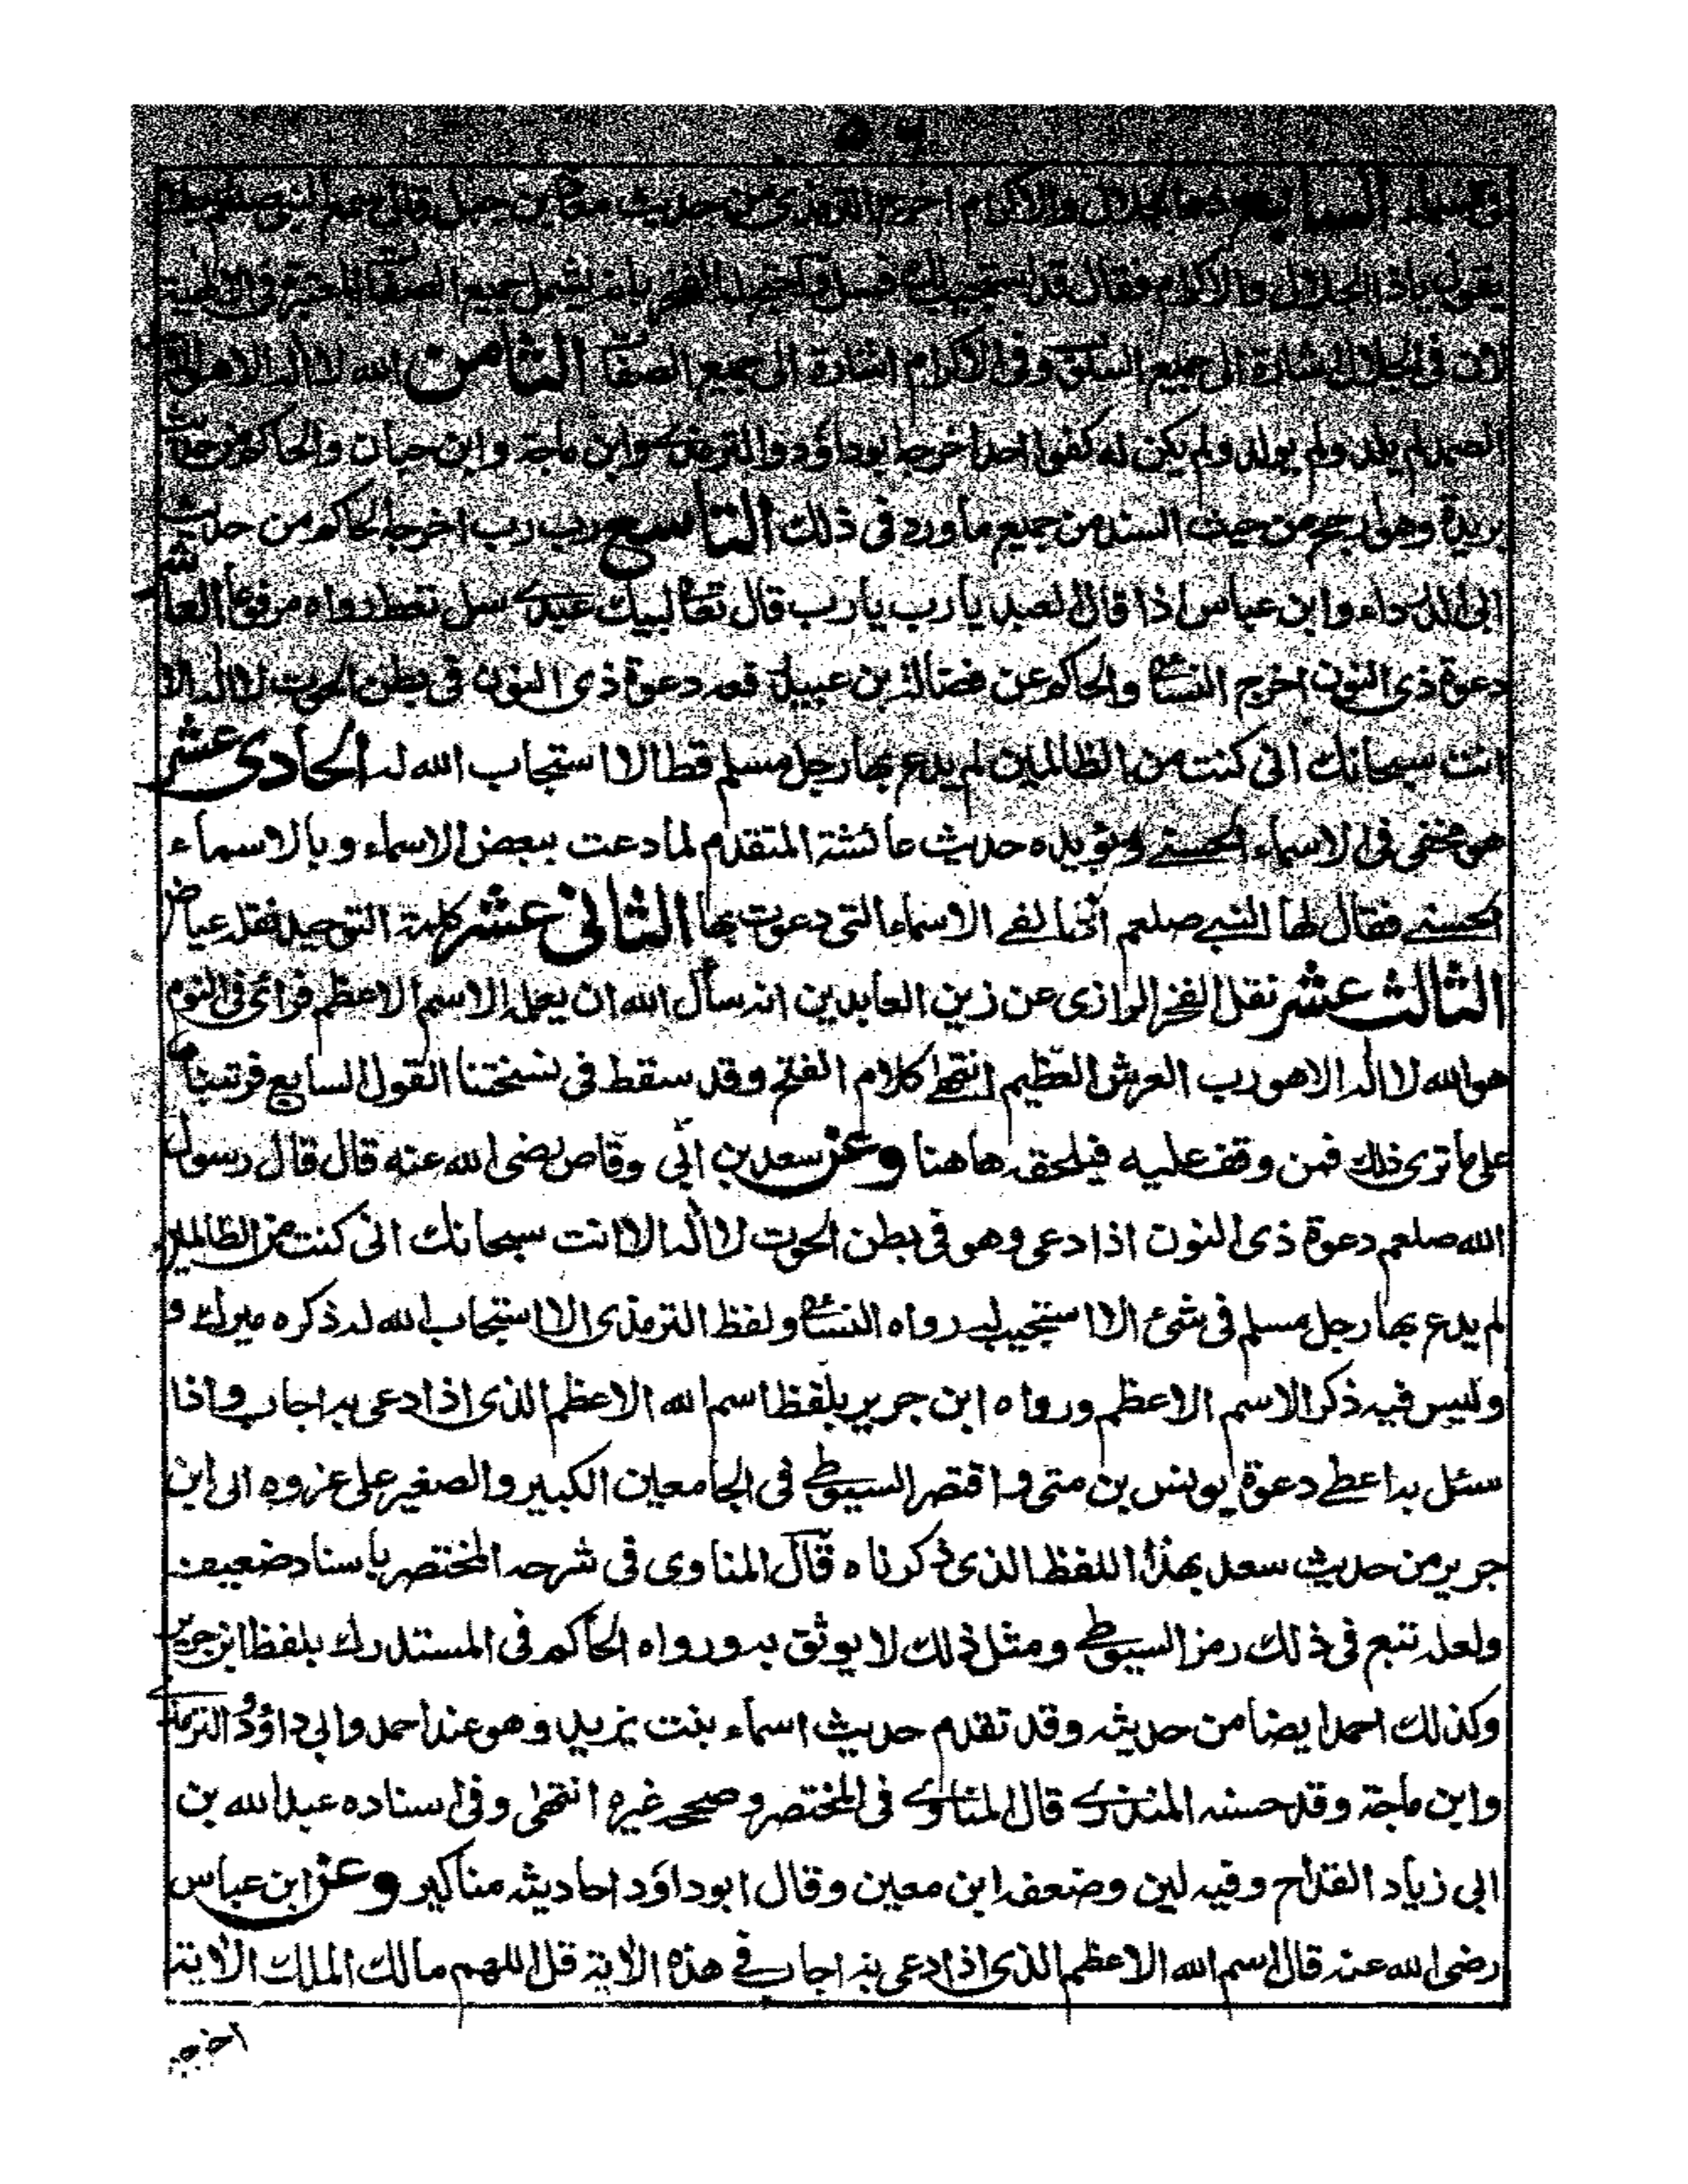 ٥٦
في السماء السابع ذو الجلال والاكرام اخرج الترمذي من حديث معاذ بن جبل قال سمع النبي صلعم رجلا
يقول يا ذا الجلال والاكرام فقال قد استجيب لك فسل واحتج له الفخر بانه يشمل جميع الصفات المعتبرة في الالهية
لان في الجلال اشارة الى جميع السلوب وفي الاكرام اشارة الى جميع الصفات الثامن الله لا اله الا هو الاحد
الصمد لم يلد ولم يولد ولم يكن له كفوا احد اخرجه ابوداؤد والترمذي وابن ماجة وابن حبان والحاكم من حديث
بريدة وهو ارجح من حيث السند من جميع ما ورد في ذلك التاسع رب رب اخرجه الحاكم من حديث
ابي الدرداء وابن عباس اذا قال العبد يا رب يا رب قال تعالى لبيك عبدي سل تعط رواه مرفوعا العاشر
دعوة ذي النون اخرج النسائي والحاكم عن فضالة بن عبيد رفعه دعوة ذي النون في بطن الحوت لا اله الا
انت سبحانك اني كنت من الظالمين لم يدع بها رجل مسلم قط الا استجاب الله له الحادي عشر
هو مخفي في الاسماء الحسنى ويؤيده حديث عائشة المتقدم لما دعت ببعض الاسماء وبالاسماء
الحسنى فقال لها النبي صلعم انها لفي الاسماء التي دعوت بها الثاني عشر كلمة التوحيد نقله عياض
الثالث عشر نقل الفخر الرازي عن زين العابدين انه سأل الله ان يعلمه الاسم الاعظم فرائ في النوم
هو الله لا اله الا هو رب العرش العظيم انتهى كلام الفتح وقد سقط في نسختنا القول السابع فرتبناه
على ما ترى ذلك فمن وقف عليه فيلحقه هاهنا وعن سعد بن ابي وقاص رضي الله عنه قال قال رسول
الله صلعم دعوة ذي النون اذا دعى وهو في بطن الحوت لا اله الا انت سبحانك اني كنت من الظالمين
لم يدع بها رجل مسلم في شئ الا استجيب له رواه النسائي ولفظ الترمذي الا استجاب الله له ذكره ميرك و
وليس فيه ذكر الاسم الاعظم ورواه ابن جرير بلفظ اسم الله الاعظم الذي اذا دعى به اجاب واذا
سئل به اعطى دعوة يونس بن متى واقتصر السيوطي في الجامعين الكبير والصغير على عزوه الى ابن
جرير من حديث سعد بهذا اللفظ الذي ذكرناه قال المناوي في شرحه المختصر باسناد ضعيف
ولعله تبع في ذلك رمز السيوطي ومثل ذلك لا يوثق به ورواه الحاكم في المستدرك بلفظ ابن جرير
وكذلك احمد ايضا من حديثه وقد تقدم حديث اسماء بنت يزيد وهو عند احمد وابي داؤد والترمذي
وابن ماجة وقد حسنه المنذري قال المناوي في المختصر وصححه غيره انتهى وفي اسناده عبد الله بن
ابي زياد القداح وفيه لين وضعفه ابن معين وقال ابو داؤد احاديثه مناكير وعن ابن عباس
رضي الله عنه قال اسم الله الاعظم الذي اذا دعى به اجاب في هذه الاية قل اللهم مالك الملك الاية
اخرجه